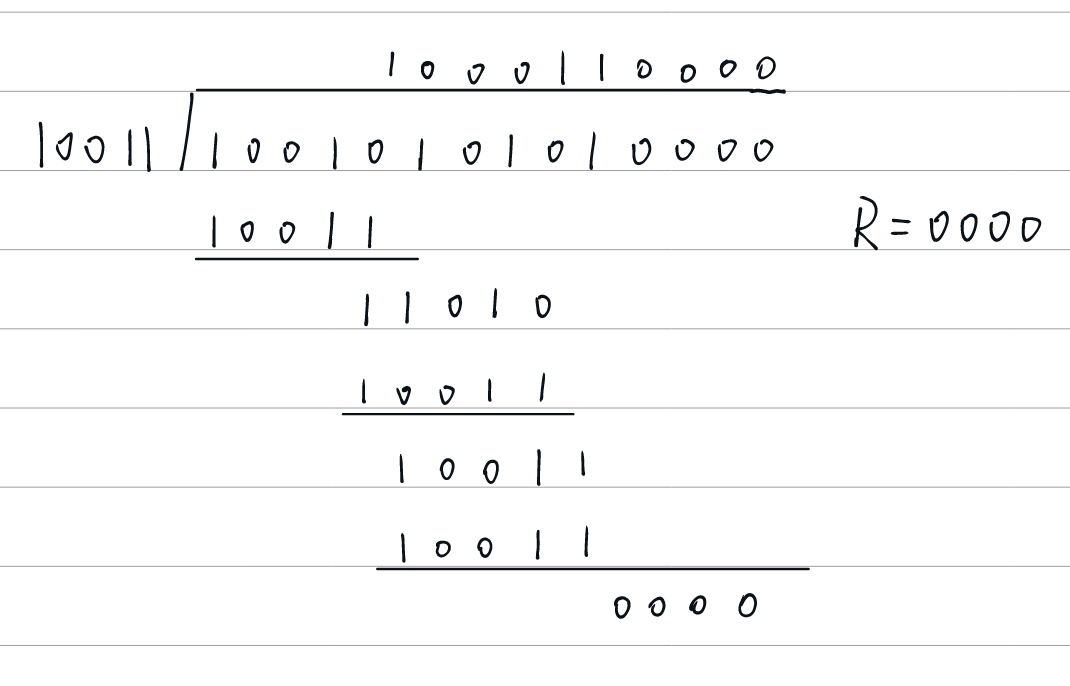 1 0 0 0 1 1 0 0 0 0
10011 / 1 0 0 1 0 1 0 1 0 1 0 0 0 0
1 0 0 1 1
R = 0 0 0 0
1 1 0 1 0
1 0 0 1 1
1 0 0 1 1
1 0 0 1 1
0 0 0 0